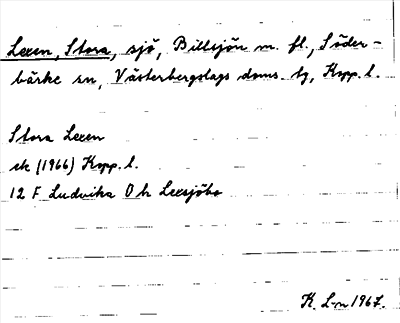 Lexen, Stora, sjö, Billsjön m. fl., Söder-
bärke sn, Västerbergslags doms. tg, Kopp. l.
Stora Lexen
ek (1966) Kopp. l.
12 F Ludvika 0 h Lexsjöbo
K. L-n 1967.